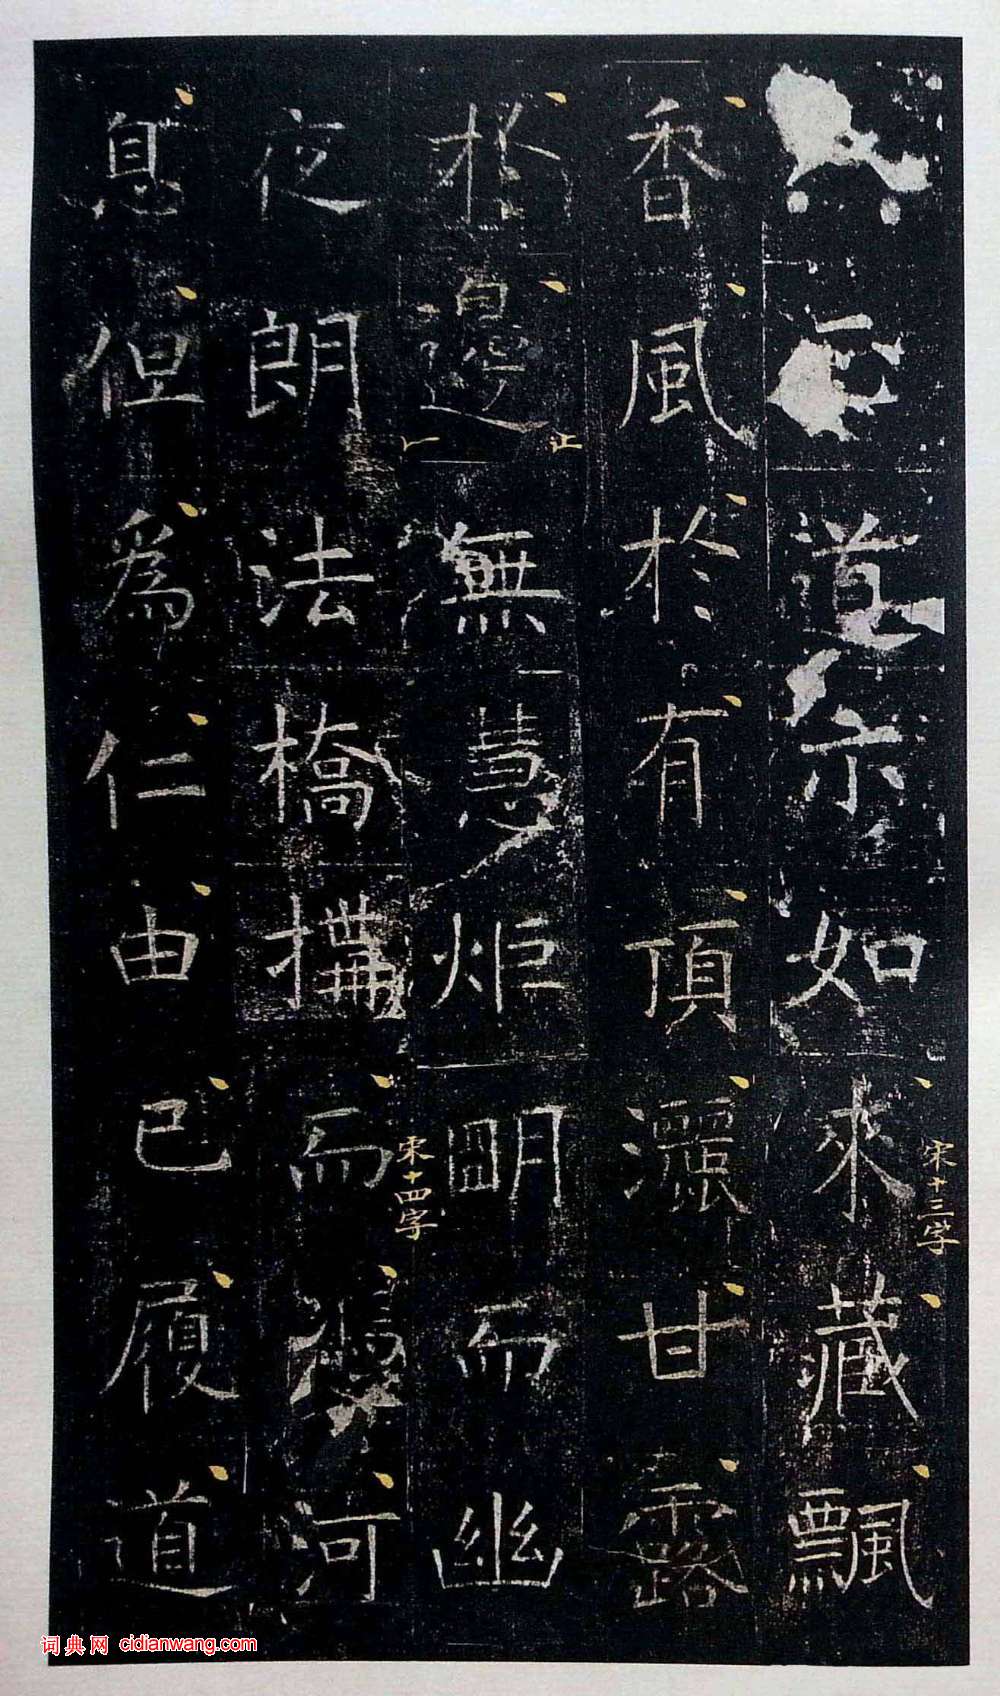 道示如來藏飄
宋十三字
香風於有頂灑甘露
於邊無慧炬明而幽
止
宋十四字
夜朗法橋搆而河
息但爲仁由己履道
词典网 cidianwang.com